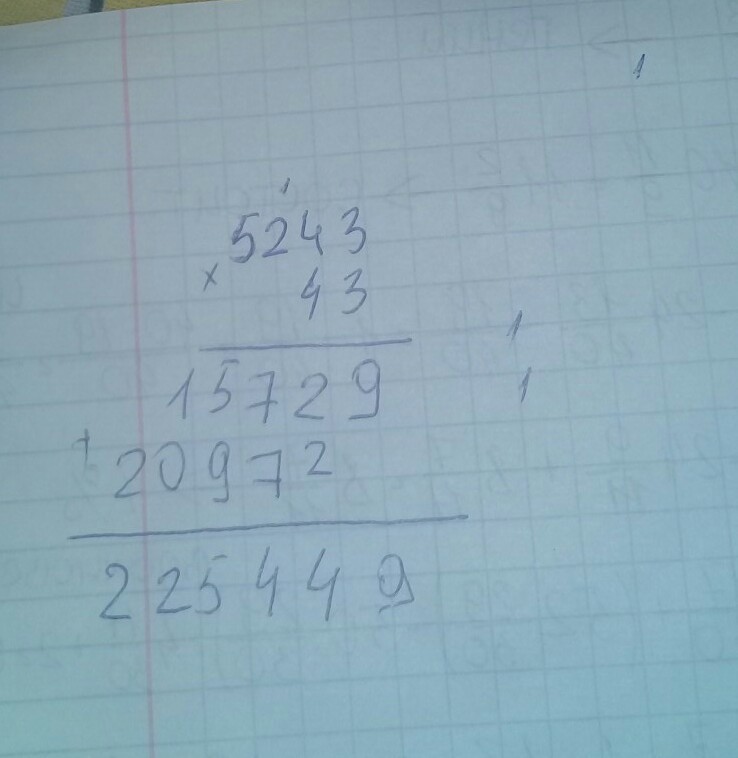 1
1
5243
× 43
1
15729
1
+ 20972
225449